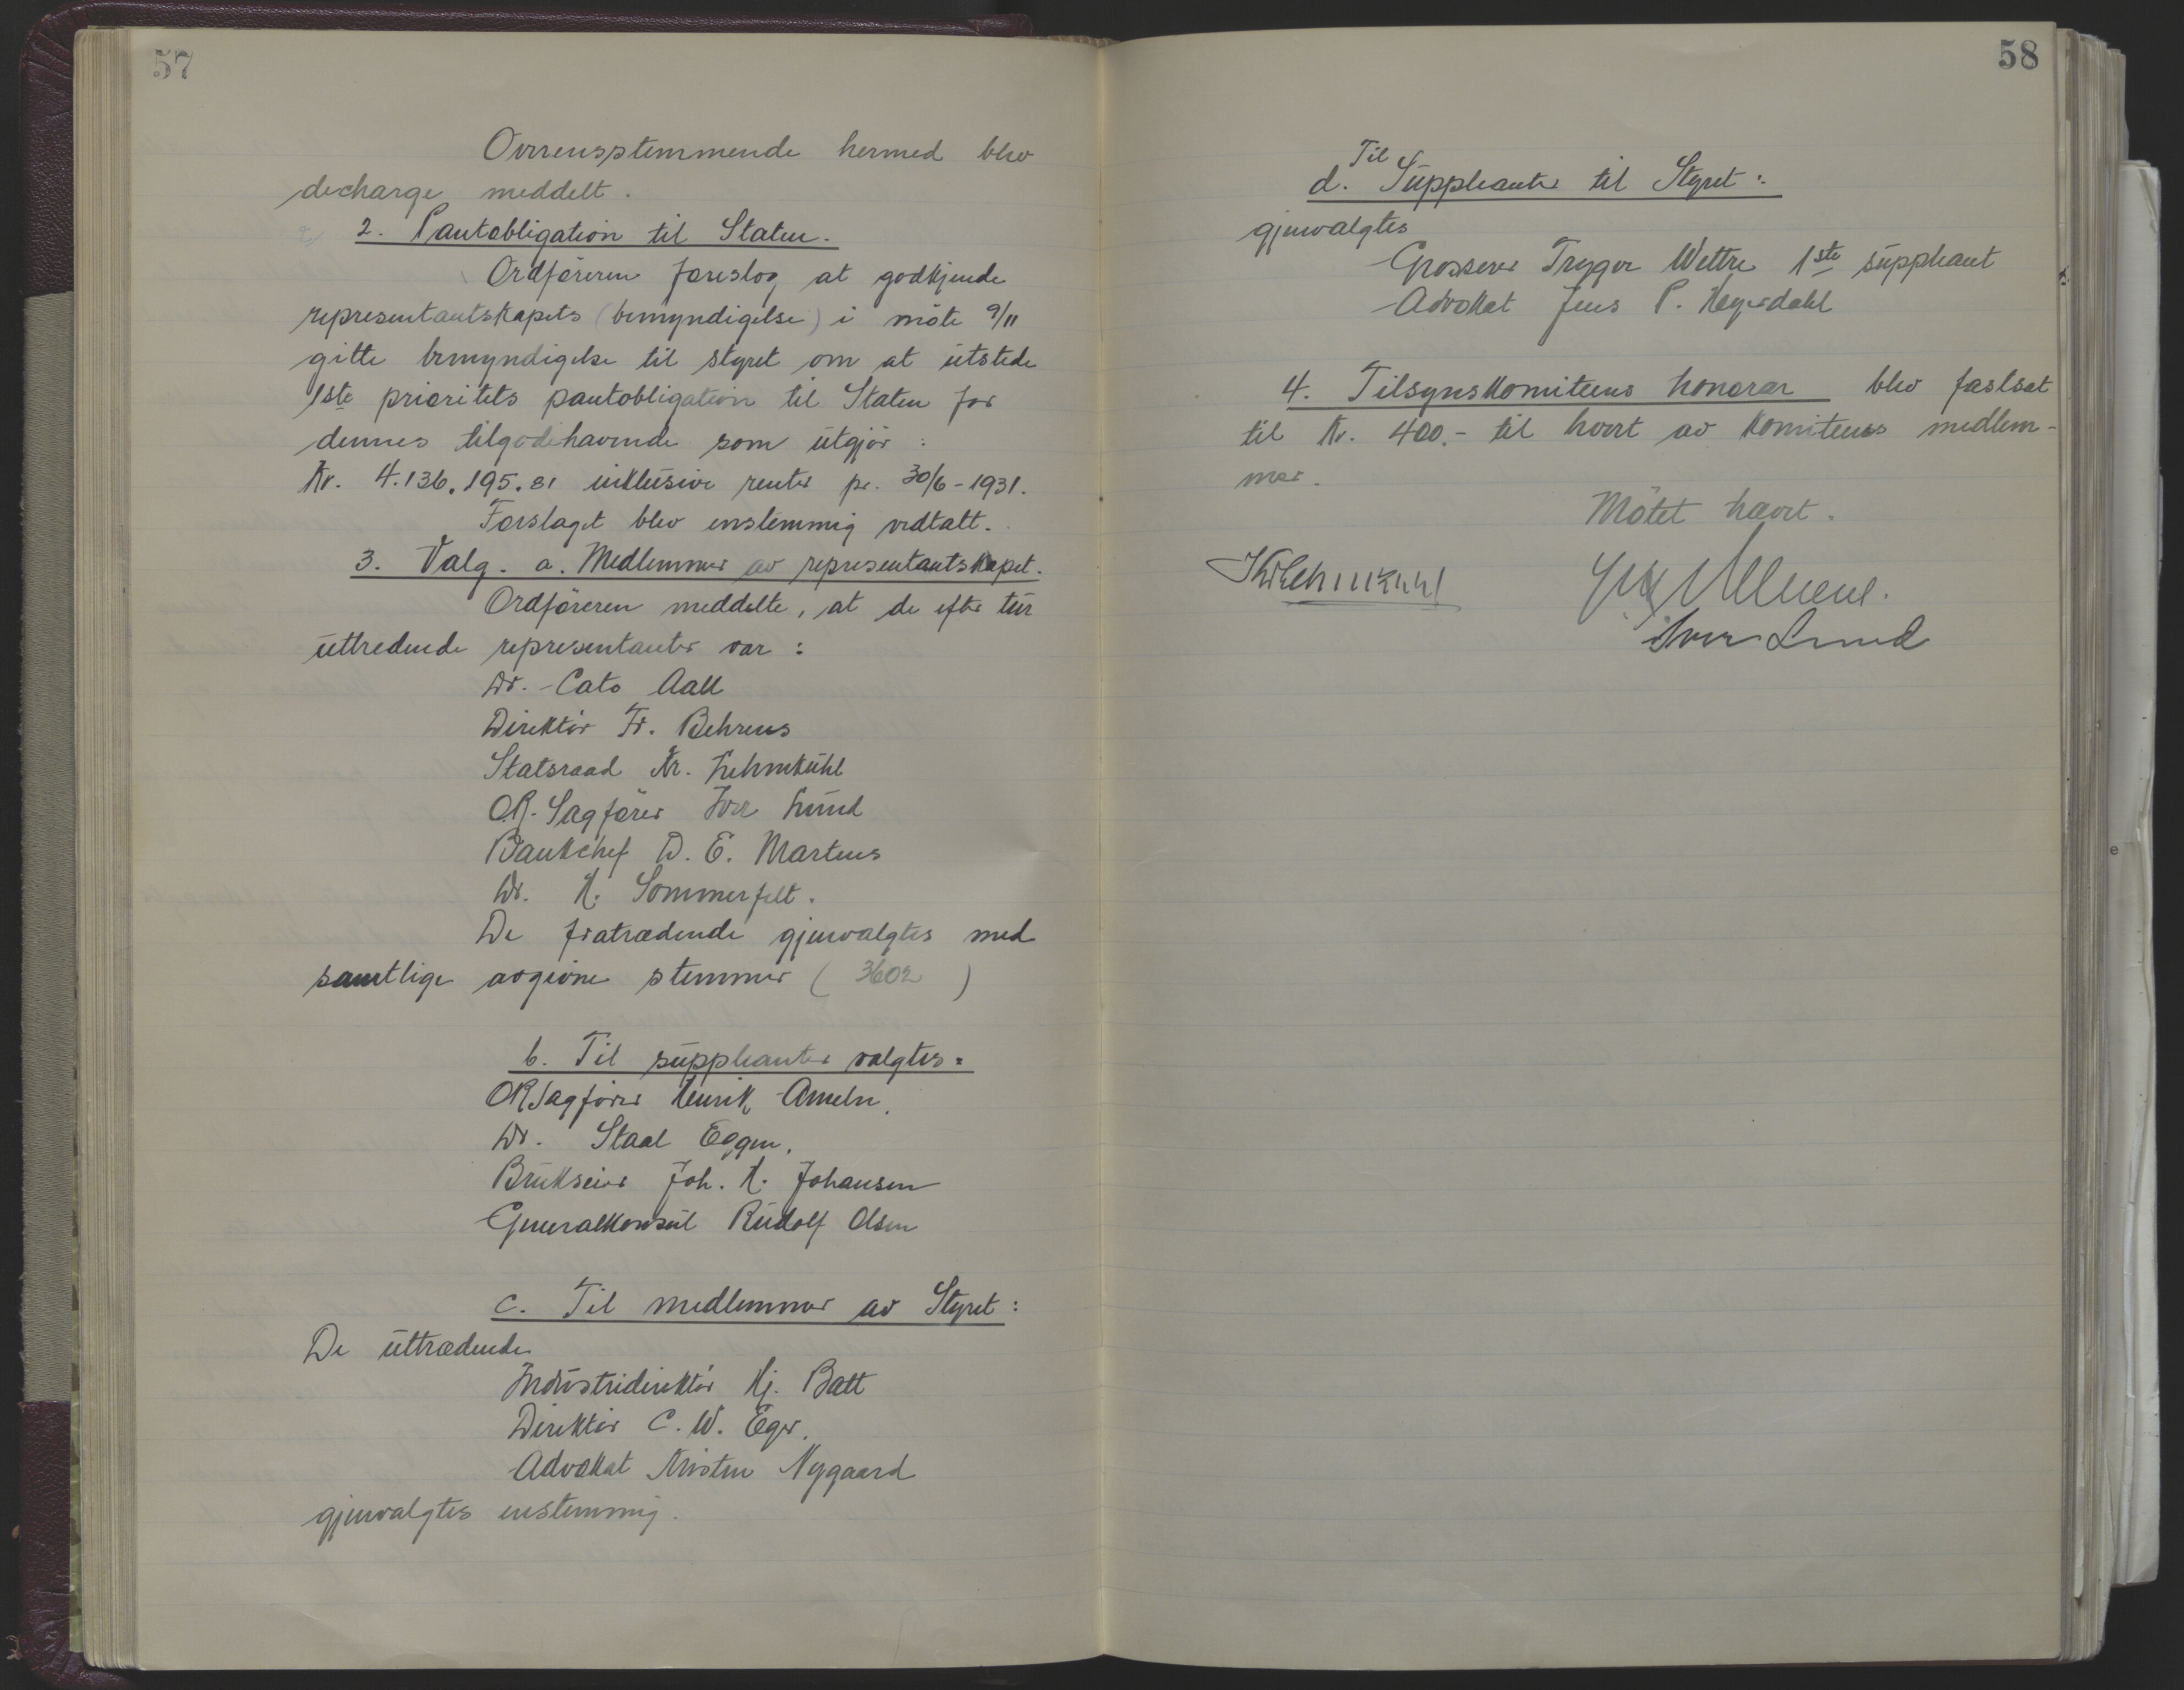 57
Overensstemmende hermed blev
decharge meddelt.
2. Pantobligation til Staten.
Ordføreren foreslog at godkjende
representantskapets (bemyndigelse) i møte 9/11
gitte bemyndigelse til styret om at utstede
1ste prioritets pantobligation til Staten for
dennes tilgodehavende som utgjør :
Kr. 4.136.195.81 inklusive renter pr. 30/6-1931.
Forslaget blev enstemmig vedtatt.
3. Valg. a. Medlemmer av representantskapet.
Ordføreren meddelte, at de efter tur
uttredende representanter var :
Dr. Cato Aall
Direktør Fr. Behrens
Statsraad Kr. Lehmkuhl
O.R. Sagfører Iver Lund
Bankchef D. E. Martens
Dr. H. Sommerfelt.
De fratrædende gjenvalgtes med
samtlige avgivne stemmer ( 3602 )
b. Til suppleanter valgtes:
ORSagfører Henrik Ameln.
Dr. Staal Eggen.
Brukseier Joh. H. Johansen
Generalkonsul Rudolf Olsen
c. Til medlemmer av Styret :
De uttrædende
Industridirektør Hj. Batt
Direktør C. W. Eger.
Advokat Kristen Nygaard
gjenvalgtes enstemmig.
58
Til
d. Suppleanter til Styret :
gjenvalgtes
Grosserer Trygve Wettre 1ste suppleant
Advokat Jens P. Heyerdahl
4. Tilsynskomiteens honorar blev fastsat
til Kr. 400.- til hvert av komiteens medlem-
mer.
Møtet hævt.
KrLehmkuhl
Iver Lund
e